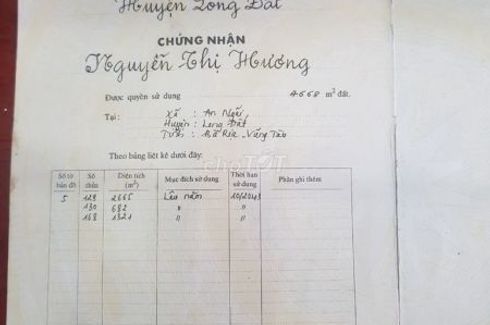 Huyện Long Đất
CHỨNG NHẬN
Nguyễn Thị Hương
Được quyền sử dụng 4668 m² đất.
Tại : Xã : An Ngãi
Huyện : Long Đất
Tỉnh : Bà Rịa - Vũng Tàu
Theo bảng liệt kê dưới đây:
Số tờ bản đồ Số thửa Diện tích (m²) Mục đích sử dụng Thời hạn sử dụng Phần ghi thêm
5 129 2665 Lâu năm 10/2043
130 682 " "
168 1321 " "
chợTỐT